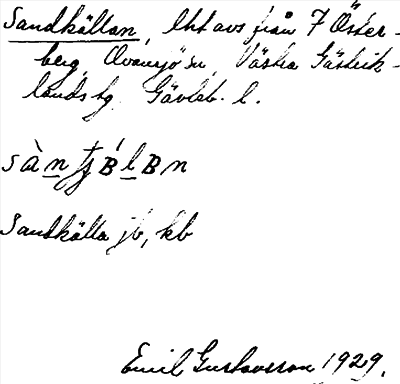 Sandkällan, lht avs från 7 Öster-
berg, Ovansjö sn, Västra Gästrik-
lands tg, Gävleb. l.
Sandkälla jb, kb
Emil Gustavsson 1929.